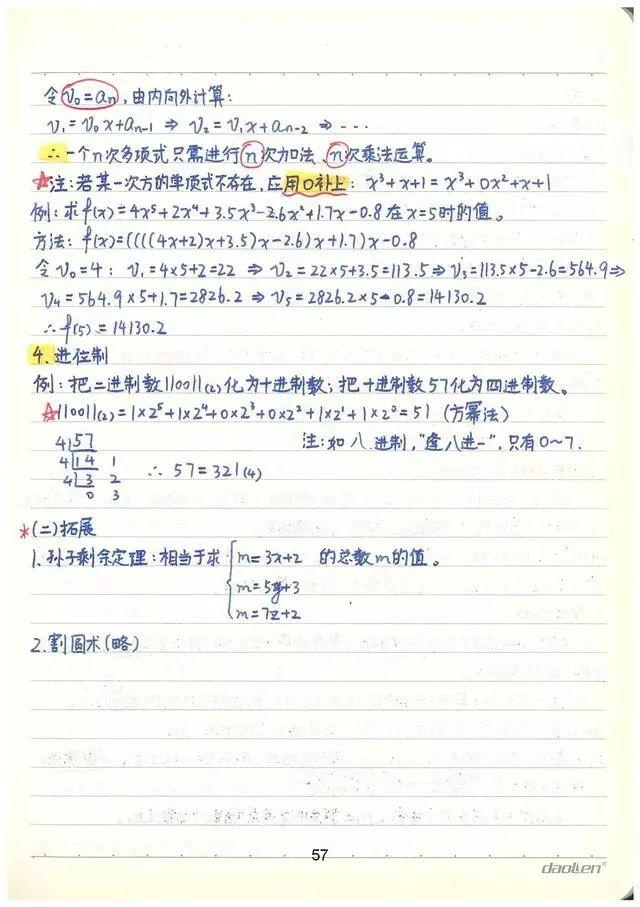 令 v₀=aₙ，由内向外计算：
v₁=v₀x+aₙ₋₁ ⇒ v₂=v₁x+aₙ₋₂ ⇒ ····
∴一个n次多项式只需进行n次加法、n次乘法运算。
☆注：若某一次方的单项式不存在，应用0补上：x³+x+1=x³+0x²+x+1
例：求f(x)=4x⁵+2x⁴+3.5x³-2.6x²+1.7x-0.8在x=5时的值。
方法：f(x)=((((4x+2)x+3.5)x-2.6)x+1.7)x-0.8
令v₀=4：v₁=4×5+2=22 ⇒ v₂=22×5+3.5=113.5 ⇒ v₃=113.5×5-2.6=564.9 ⇒
v₄=564.9×5+1.7=2826.2 ⇒ v₅=2826.2×5-0.8=14130.2
∴f(5)=14130.2
4.进位制
例：把二进制数110011(2)化为十进制数；把十进制数57化为四进制数。
☆110011(2)=1×2⁵+1×2⁴+0×2³+0×2²+1×2¹+1×2⁰=51（方幂法）
4|57
注：如八进制，"逢八进一"，只有0~7.
4|14 1
∴ 57=321(4)
4|3 2
0 3
*(二)拓展
1.孙子剩余定理：相当于求{m=3x+2 的总数m的值。
m=5y+3
m=7z+2
2.割圆术(略)
57
daolen®